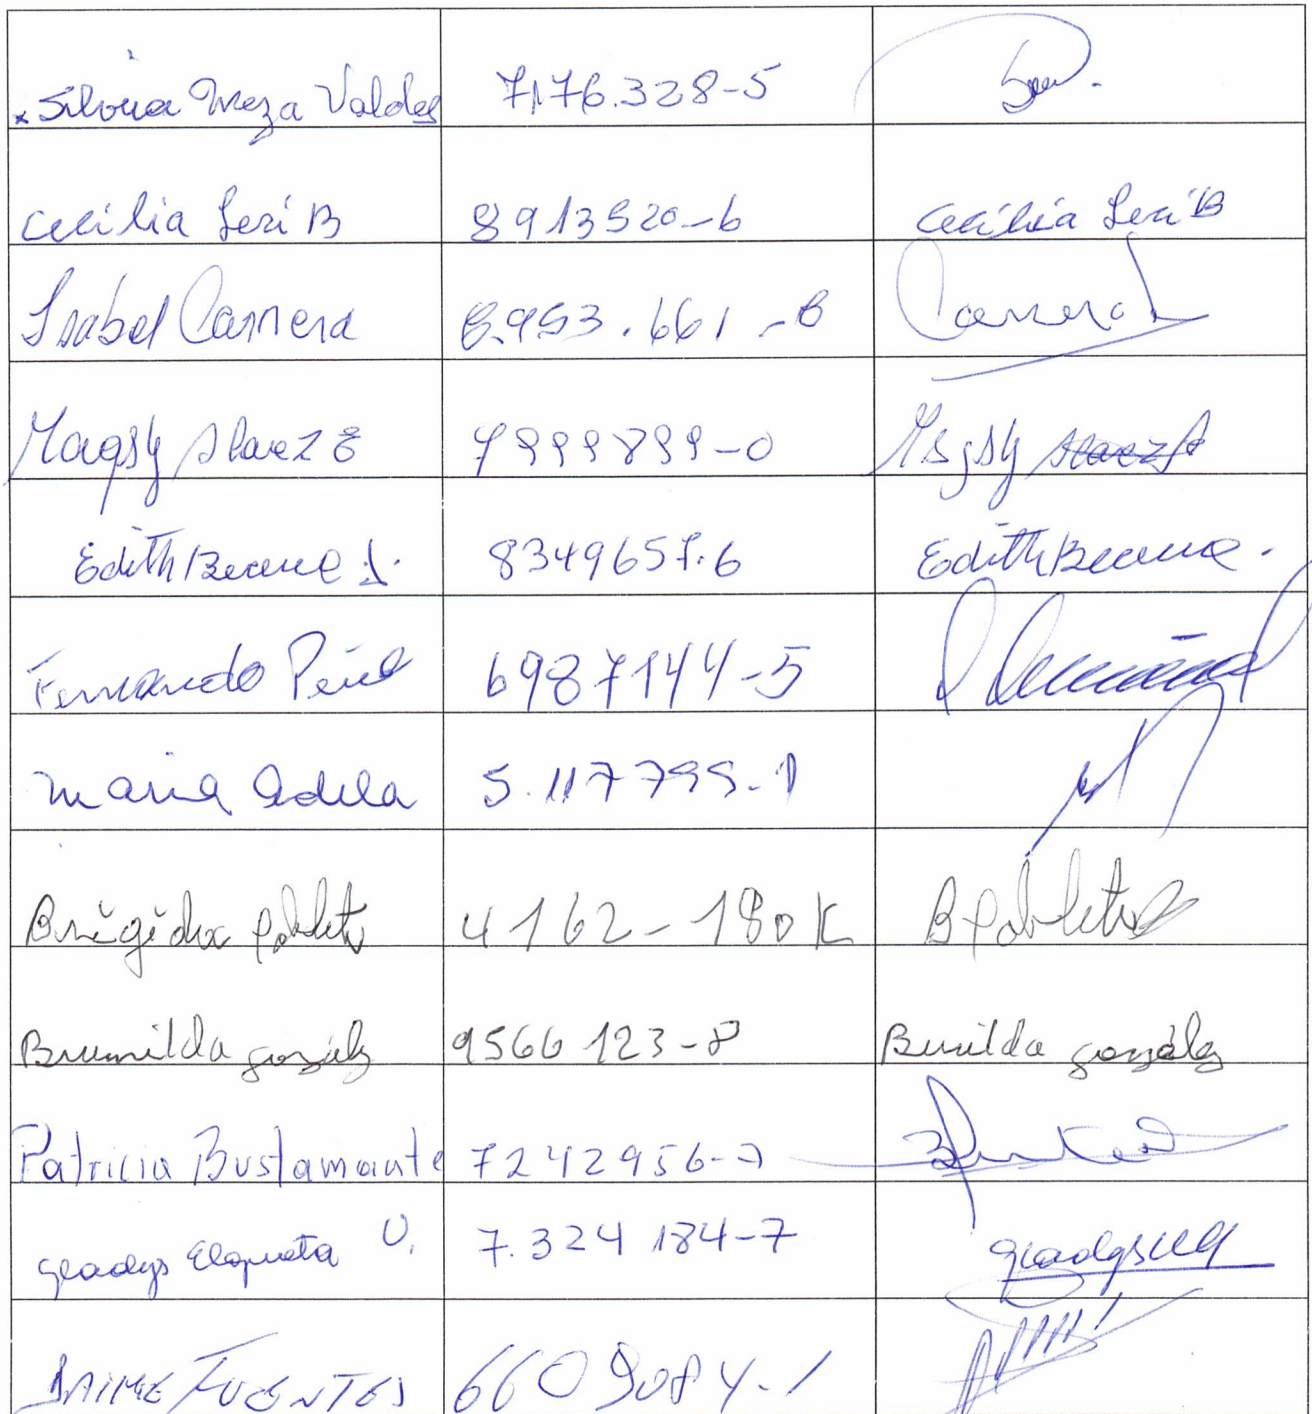 Silvia Meza Valdes 7.176.328-5
Cecilia Leri B 8913520-6 Cecilia Leri B
Isabel Carrera 8.953.661-8 Carrera
Magsy 7999899-0 Magsy
Edith 8349657.6 Edith
Fernando Peña 6987144-5
maria Adela 5.117799-1
Brigida Poblete 4162-180K BPoblete
Brunilda gonzález 9566123-8 Brunilda gonzález
Patricia Bustamante 7242956-7
gladys Elgueta U. 7.324184-7 gladys
JAIME FUENTES 6609084-1